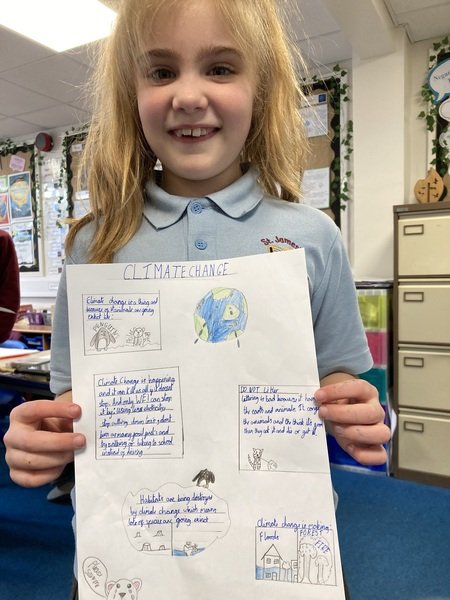 St. James
CLIMATE CHANGE
Climate change is a thing and
because of it animals are going
extinct like:
PENGUINS
Climate change is happening
and it can kill us all if it doesnt
stop. And only WE! can stop
it by: Using less electricity
stop cutting down trees and dont
burn as many fossil fuels and
by walking or biking to school
instead of driving
DO NOT Litter
Littering is bad because it
the earth and animals. It can
the animals and the think its
then they eat it and die or get ill.
Habitats are being destroyed
by climate change which means
lots of are going extinct
Climate change is making:
Floods FOREST
FIRES